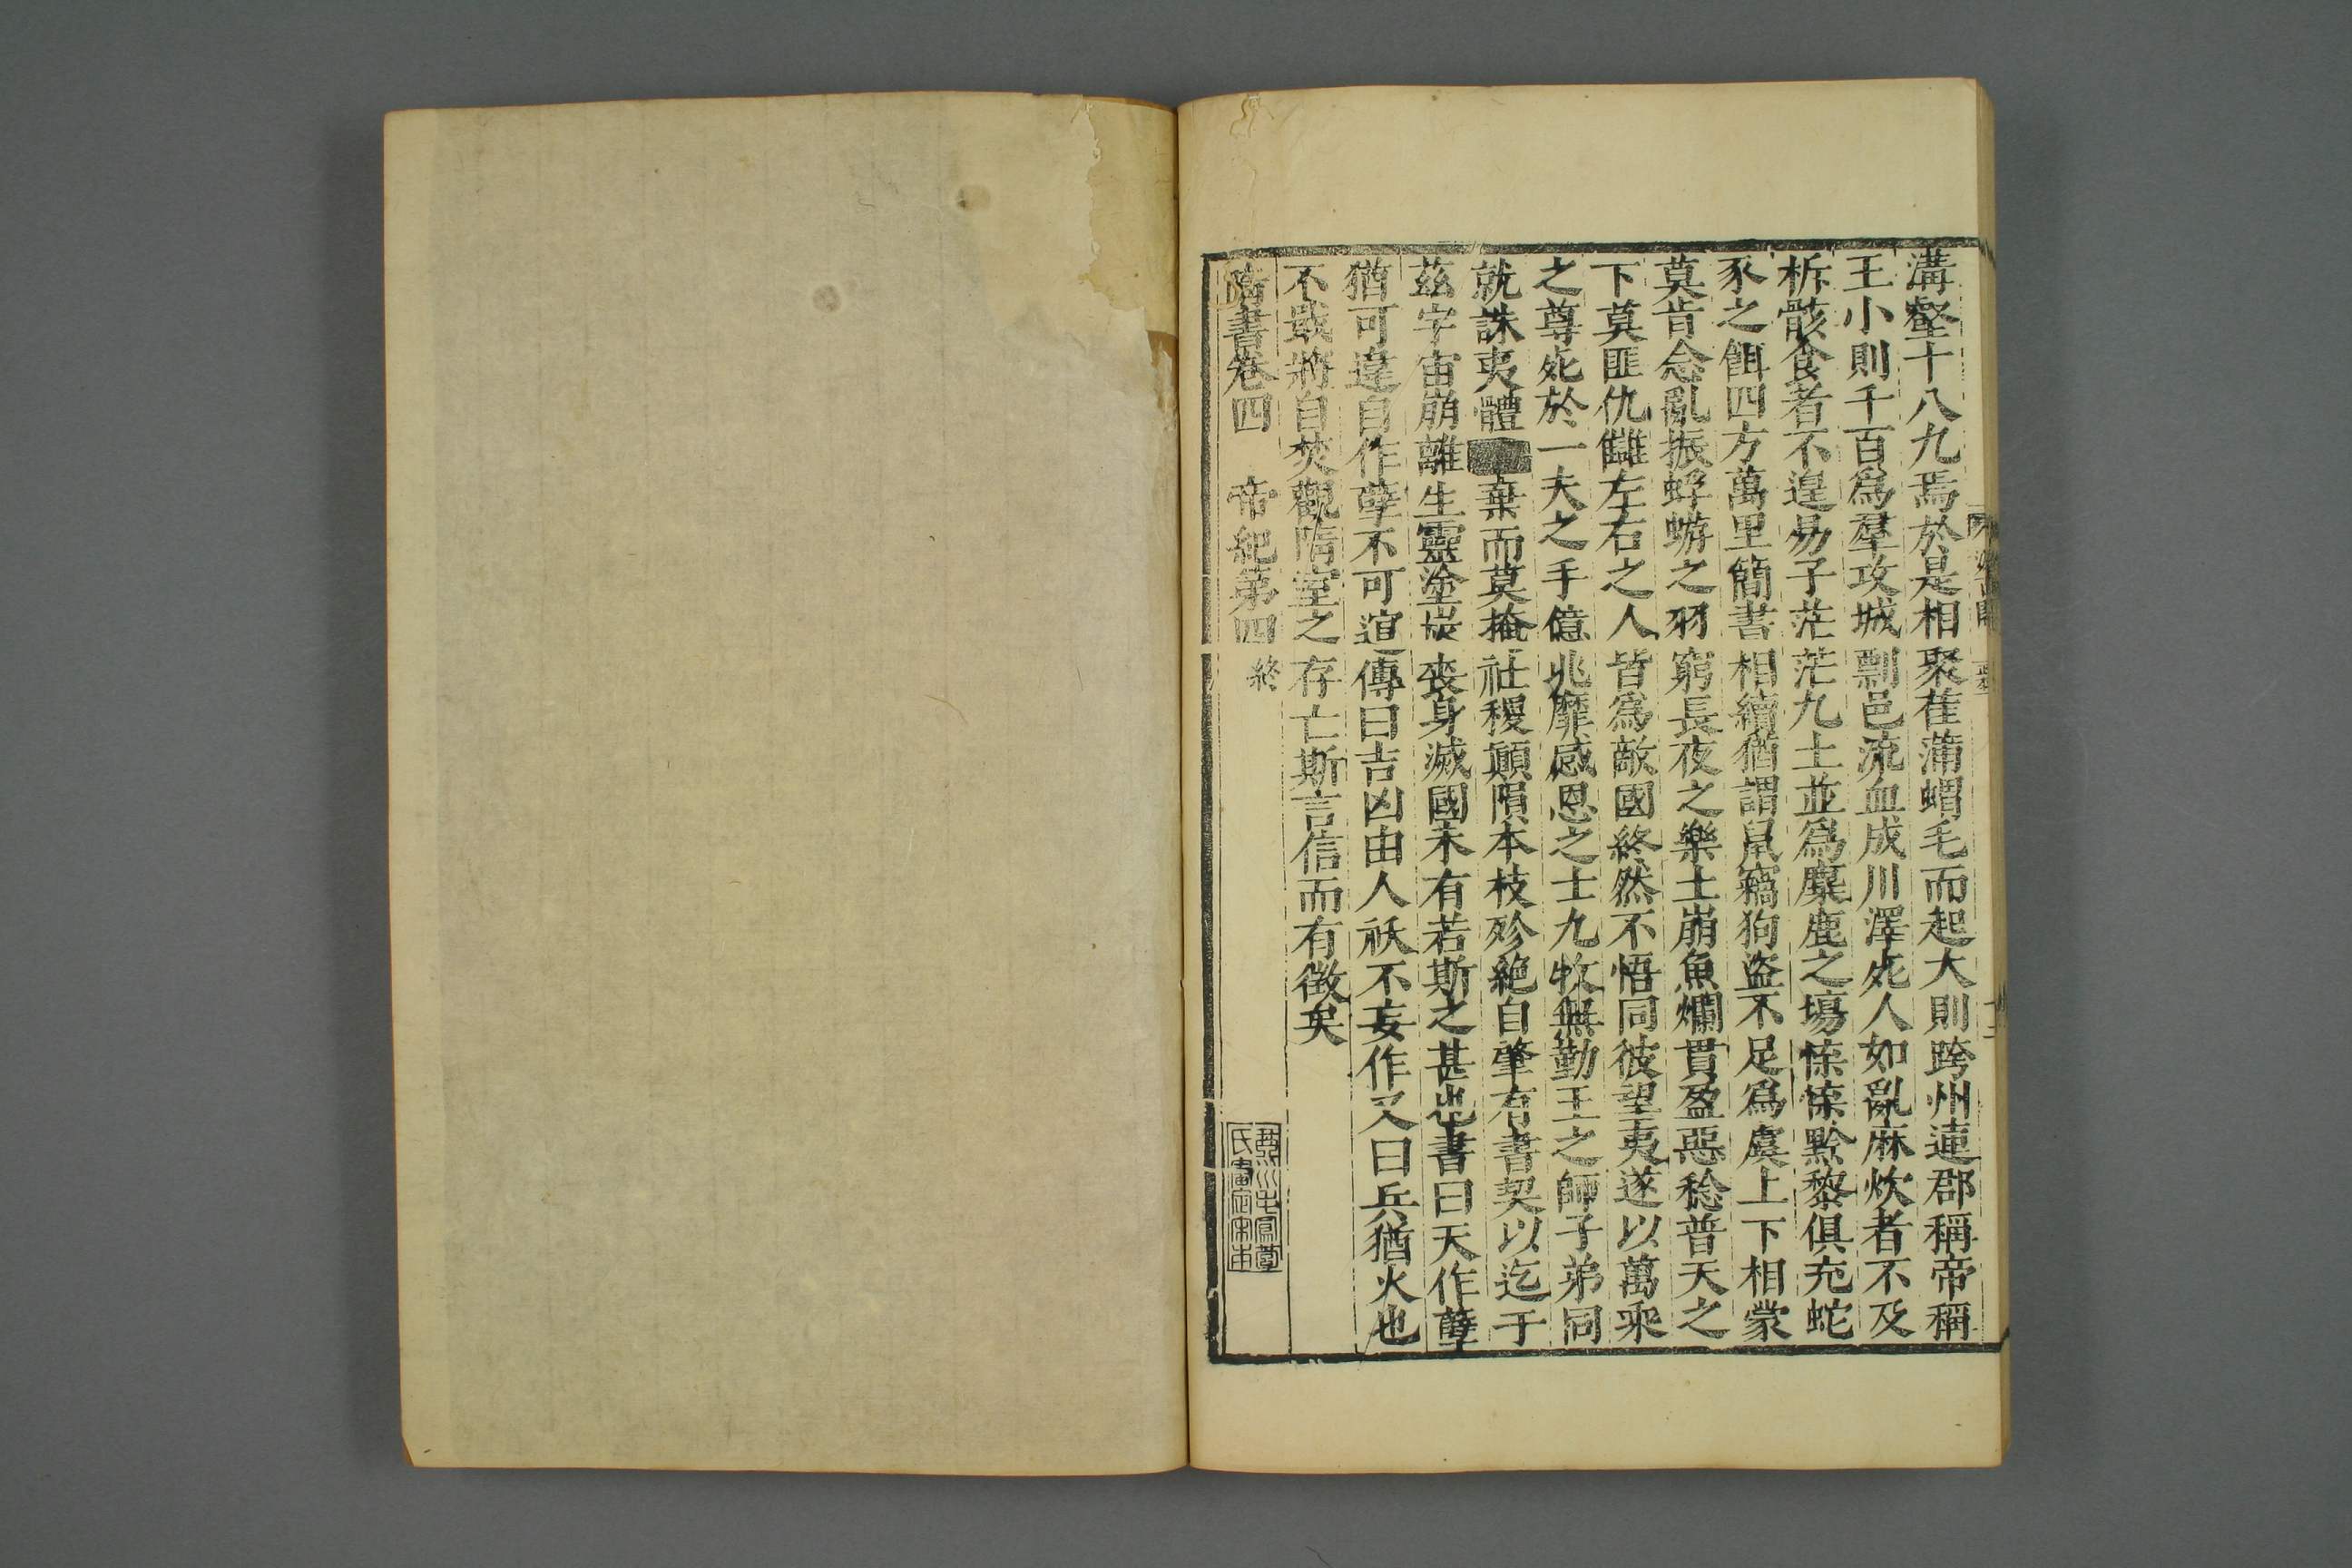 溝壑十八九焉於是相聚萑蒲蝟毛而起大則跨州連郡稱帝稱
王小則千百爲羣攻城剽邑流血成川澤死人如亂麻炊者不及
析骸食者不遑易子茫茫九土並爲麋鹿之場悚悚黔黎俱充蛇
豕之餌四方萬里簡書相續猶謂鼠竊狗盜不足爲虞上下相蒙
莫肯念亂振蜉蝣之羽窮長夜之樂土崩魚爛貫盈惡稔普天之
下莫匪仇讎左右之人皆爲敵國終然不悟同彼望夷遂以萬乘
之尊死於一夫之手億兆靡感恩之士九牧無勤王之師子弟同
就誅夷體棄而莫掩社稷顚隕本枝殄絶自肇有書契以迄于
茲宇宙崩離生靈塗炭喪身滅國未有若斯之甚也書曰天作孽
猶可違自作孽不可逭傳曰吉凶由人祅不妄作又曰兵猶火也
不戢將自焚觀隋室之存亡斯言信而有徵矣
隋書卷四 帝紀第四 終